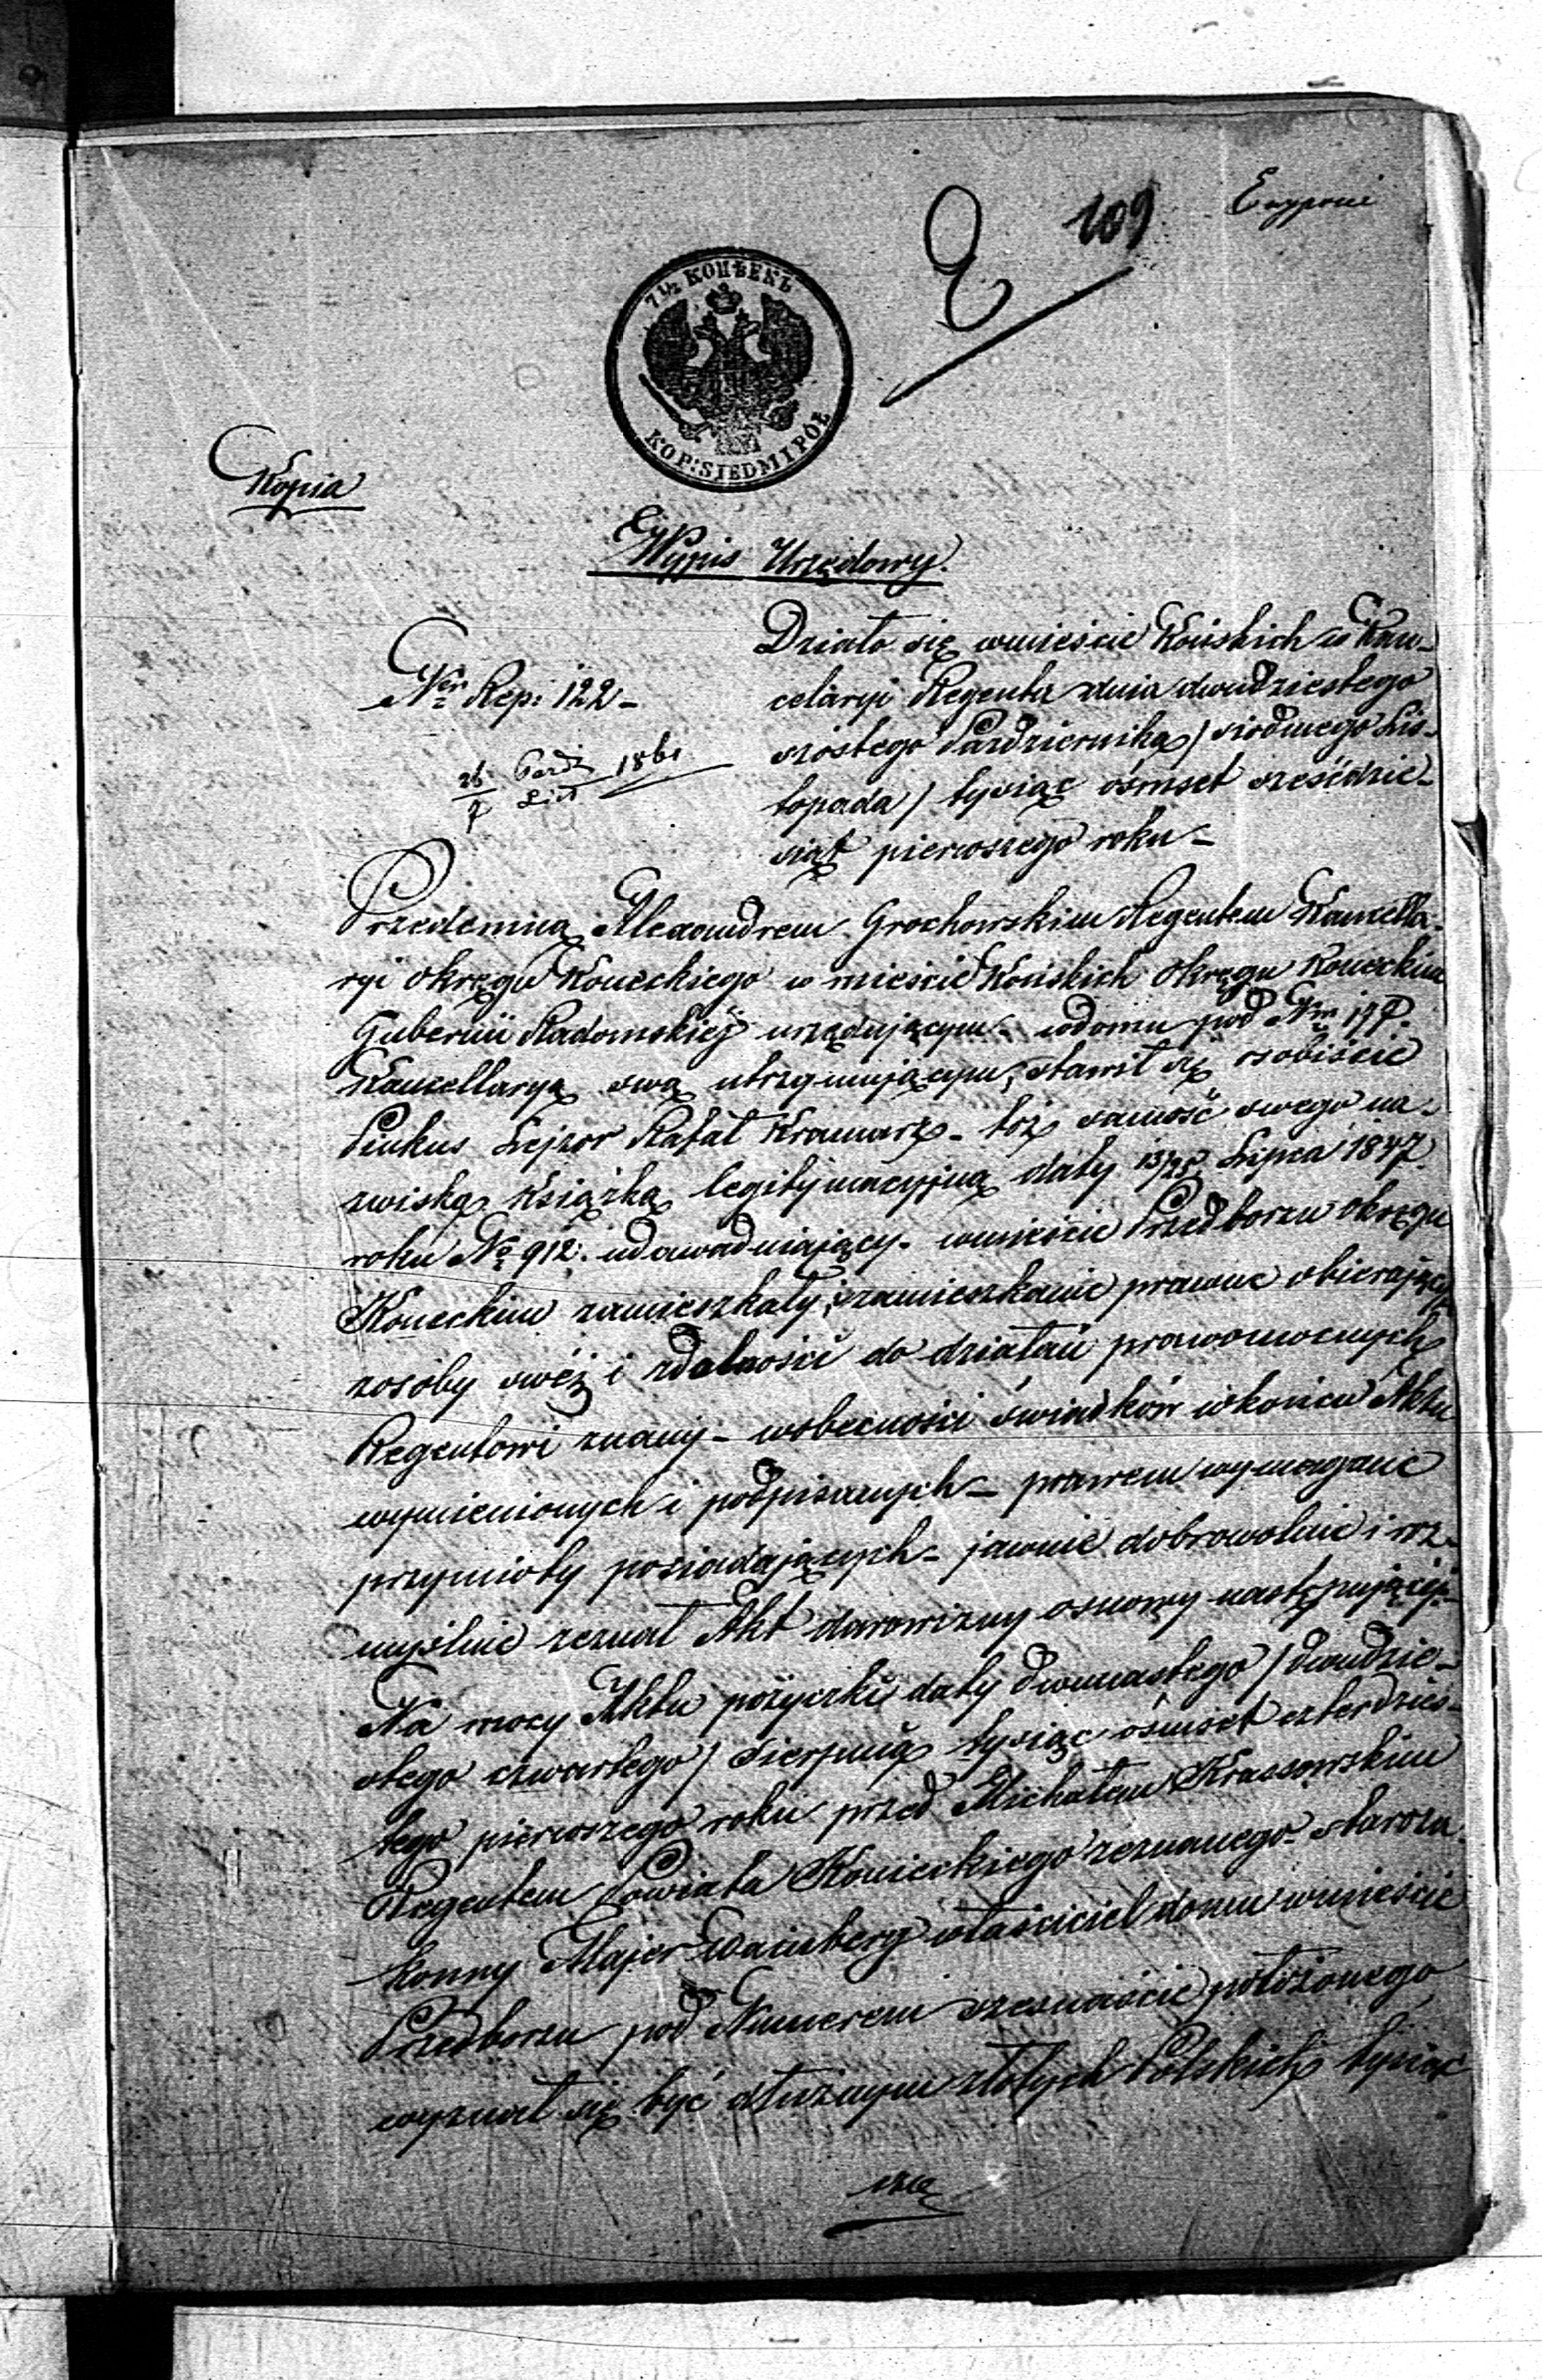 109
7½ КОПѢЕКЪ
KOP: SIEDM I PÓŁ
Kopia
Wypis Urzędowy.
Działo się w mieście Końskich w Kan-
celaryi Regenta dnia dwudziestego
szóstego Pazdziernika / siódmego Lis-
topada / tysiąc ośmset sześćdzie-
siąt pierwszego roku -
Nr Rep: 122 -
26 Pazdz
7 List 1861
Przedemną Alexandrem Grochowskim Regentem Kancella-
ryi Okręgu Koneckiego w mieście Końskich Okręgu Koneckim
Gubernii Radomskiej urzędującym w domu pod Nrm 117.
Kancellaryą swą utrzymującym, stawił się osobiście
Pinkus Lejzor Rafał Kramarz - toż samość swego na-
zwiska książką legitymacyjną daty 13/25 Lipca 1847
roku No 912. udawadniający - w mieście Przedborzu Okręgu
Koneckim zamieszkały, zamieszkanie prawne obierający
z osoby swéj i zdolności do działań prawomocnych
Regentowi znany - w obecności świadków w końcu Aktu
wymienionych i podpisanych - prawem wymagane
przymioty posiadających - jawnie dobrowolnie i roz-
myślnie zeznał Akt darowizny osnowy następującéj -
Na mocy Aktu pożyczki daty dwunastego / dwudzie-
stego czwartego / Sierpnia tysiąc ośmset czterdzies-
tego pierwszego roku przed Michałem Krassowskim
Regentem Powiatu Koneckiego zeznanego - staroza-
konny Majer Wainberg właściciel domu w mieście
Przedborzu pod Numerem szesnaście położonego
wyznał się być dłużnym złotych Polskich tysiąc